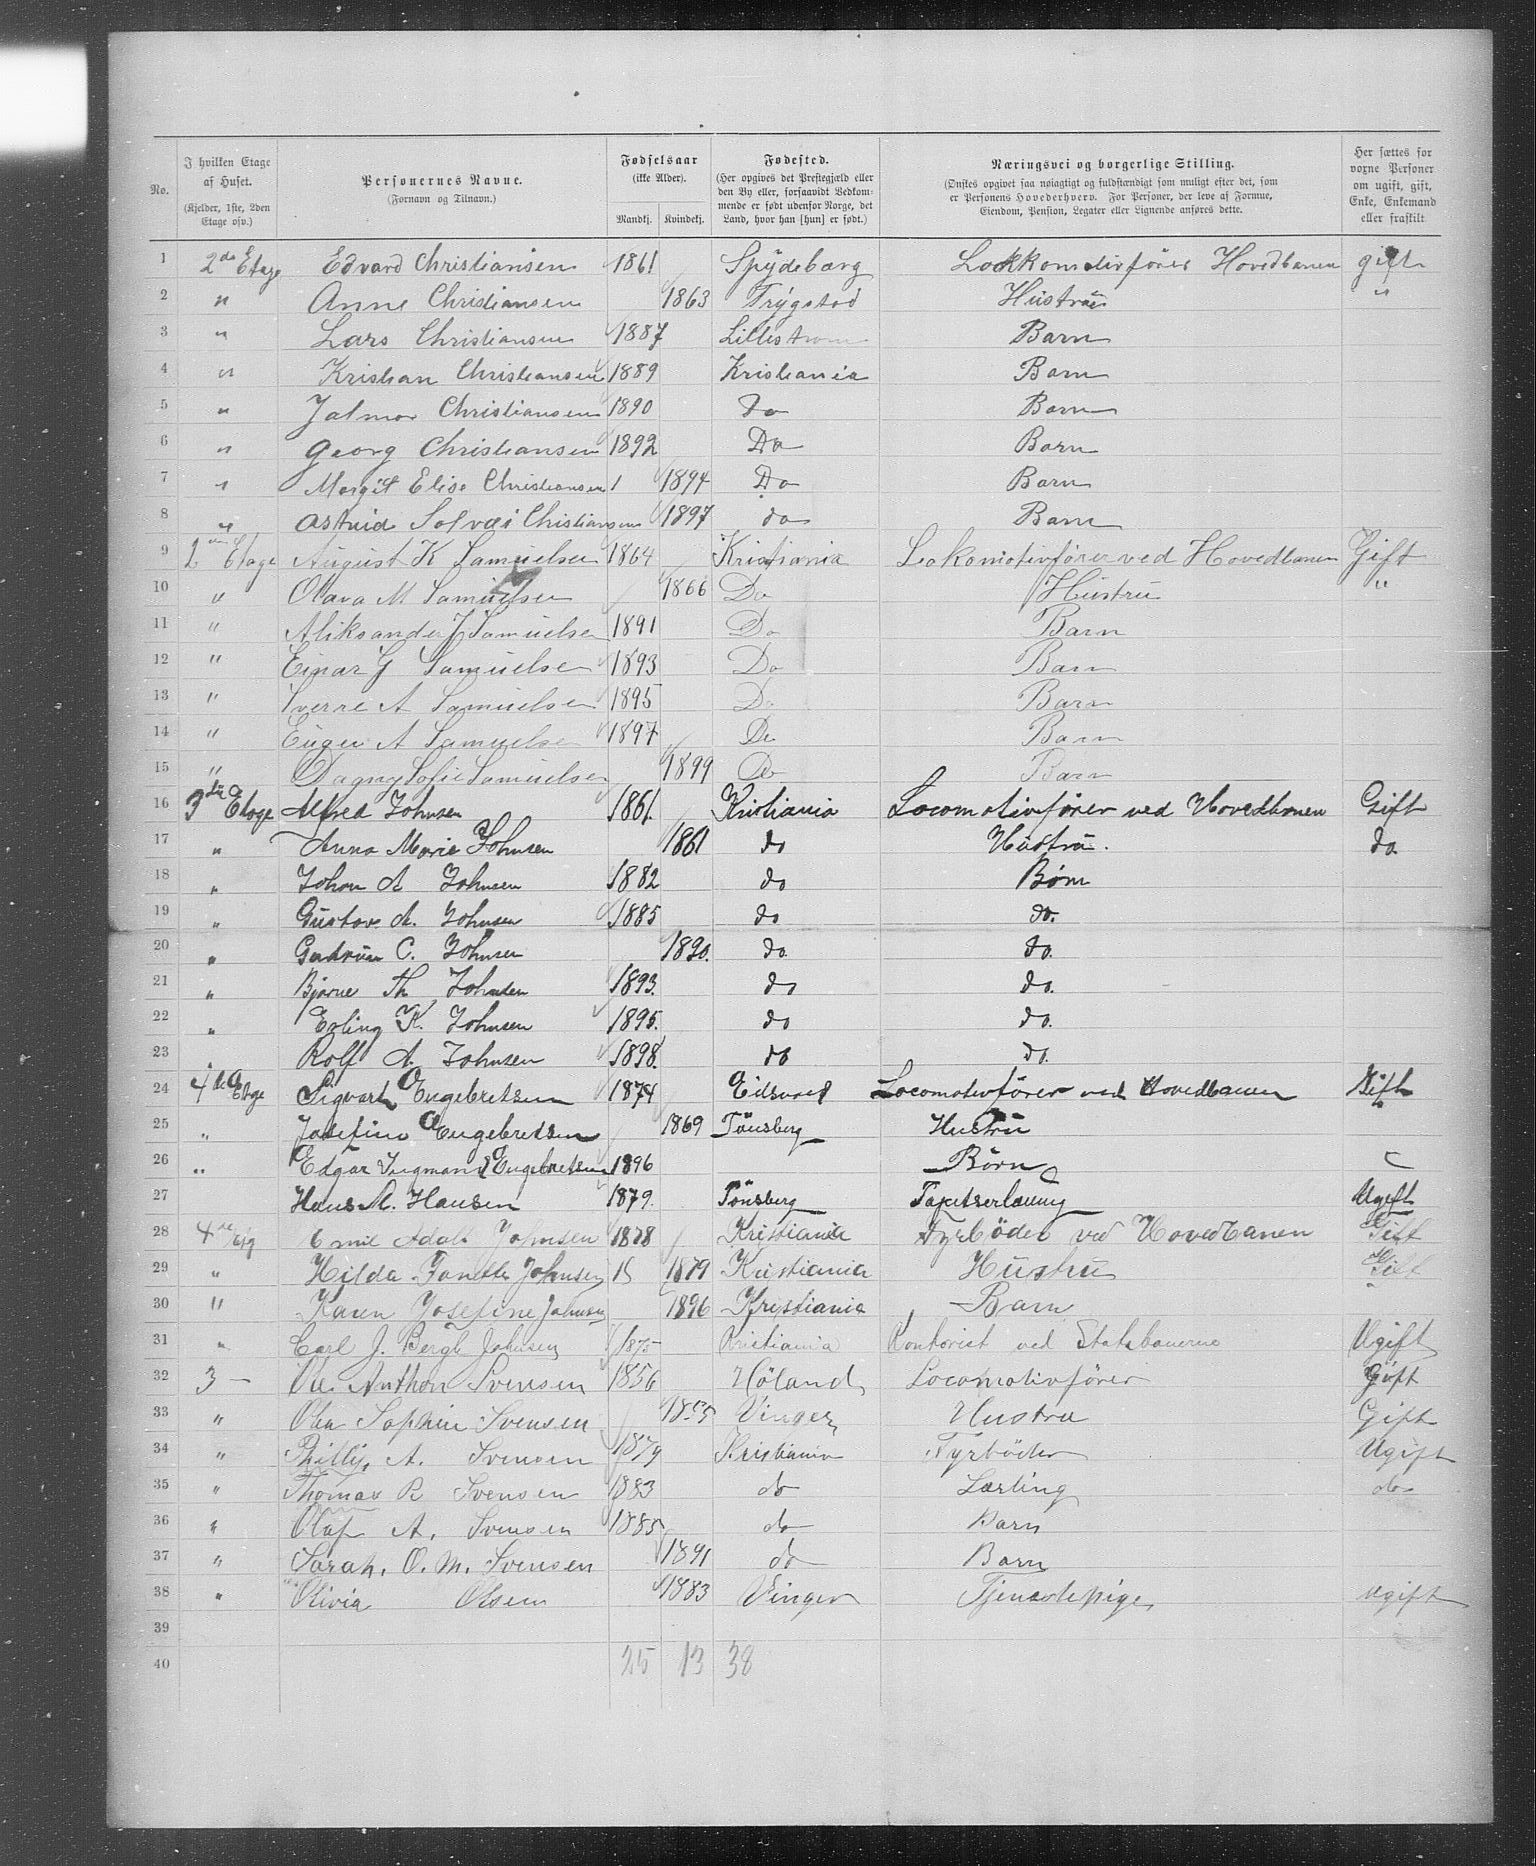 No. | I hvilken Etage af Huset. (Kjelder, 1ste, 2den Etage osv.) | Personernes Navne. (Fornavn og Tilnavn.) | Fødselsaar (ikke Alder). Mandkj. | Kvindekj. | Fødested. (Her opgives det Prestegjæld eller den By eller, forsaavidt Vedkommende er født udenfor Norge, det Land, hvor han [hun] er født.) | Næringsvei og borgerlige Stilling. (Ønskes opgivet saa nøiagtigt og fuldstændigt som muligt efter det, som er Personens Hovederhverv. For Personer, der leve af Formue, Eiendom, Pension, Legater eller Lignende anføres dette. | Her sættes for voxne Personer om ugift, gift, Enke, Enkemand eller fraskilt
1 2de Etage Edvard Christiansen 1861 Spydebærg Lockkomotivfører Hovedbanen gift
2 " Anne Christiansen 1863 Trygstad Hustrü "
3 " Lars Christiansen 1887 Lillestrøm Barn
4 " Kristian Christiansen 1889 Kristiania Barn
5 " Jalmar Christiansen 1890 do Barn
6 " Georg Christiansen 1892 Do Barn
7 " Margit Elise Christiansen 1 1894 Do Barn
8 " Astrid Solvei Christiansen 1897 do Barn
9 2den Etage August K Samuelsen 1864 Kristiania Lokomotivfører ved Hovedbanen Gift
10 " Olava M Samuelsen 1866 Do Hustrü "
11 " Aliksander J Samuelsen 1891 Do Barn
12 " Einar G Samuelsen 1893 Do Barn
13 " Sverre A Samuelsen 1895 Do Barn
14 " Eugen A Samuelsen 1897 Do Barn
15 " Dagny Sofie Samuelsen 1899 Do Barn
16 3die Etage Alfred Johnsen 1861. Kristiania Locomotivfører ved Hovedbanen Gift
17 " Anna Marie Johnsen 1861 do Hustrü. do.
18 " Johan A Johnsen 1882 do Børn
19 " Gustav A. Johnsen 1885 do do.
20 " Gudrun C. Johnsen 1890. do do.
21 " Bjarne Th Johnsen 1893. do do.
22 " Erling K. Johnsen 1895. do do.
23 " Rolf A. Johnsen 1898. do do.
24 4de Etage Sigvart Engebretsen 1874 Eidsvold Locomotivfører ved Hovedbanen Gift
25 " Josefine Engebretsen 1869 Tönsberg Hustrü "
26 " Edgar Ingmand Engebretsen 1896 Börn
27 Hans M. Hansen 1879. Tönsberg Tapetserlærling Ugift
28 4de Etg Emil Adolf Johnsen 1878 Kristiania Fyrböder ved Hovedbanen Gift
29 " Hilda Fanette Johnsen 1879 Kristiania Hustrü Gift
30 " Karen Josefine Johnsen 1896 Kristiania Barn
31 " Carl J. Bergh Johnsen 1875 Kristiania Kontorist ved Statsbanerne Ugift
32 3 — Ole Anthon Svensen 1856 Höland Locomotivfører Gift
33 " Olea Sophie Svensen 1855 Vinger Hustru Gift
34 " Philip A. Svensen 1879 Kristiania Fyrböder Ugift
35 " Thomas R Svensen 1883 do Lærling do
36 " Olaf A. Svensen 1885 do Barn
37 " Sarah. O. M. Svensen 1891 do Barn
38 " Olivia Olsen 1883 Vinger Tjenestepige ugift
39
40 25 13 38